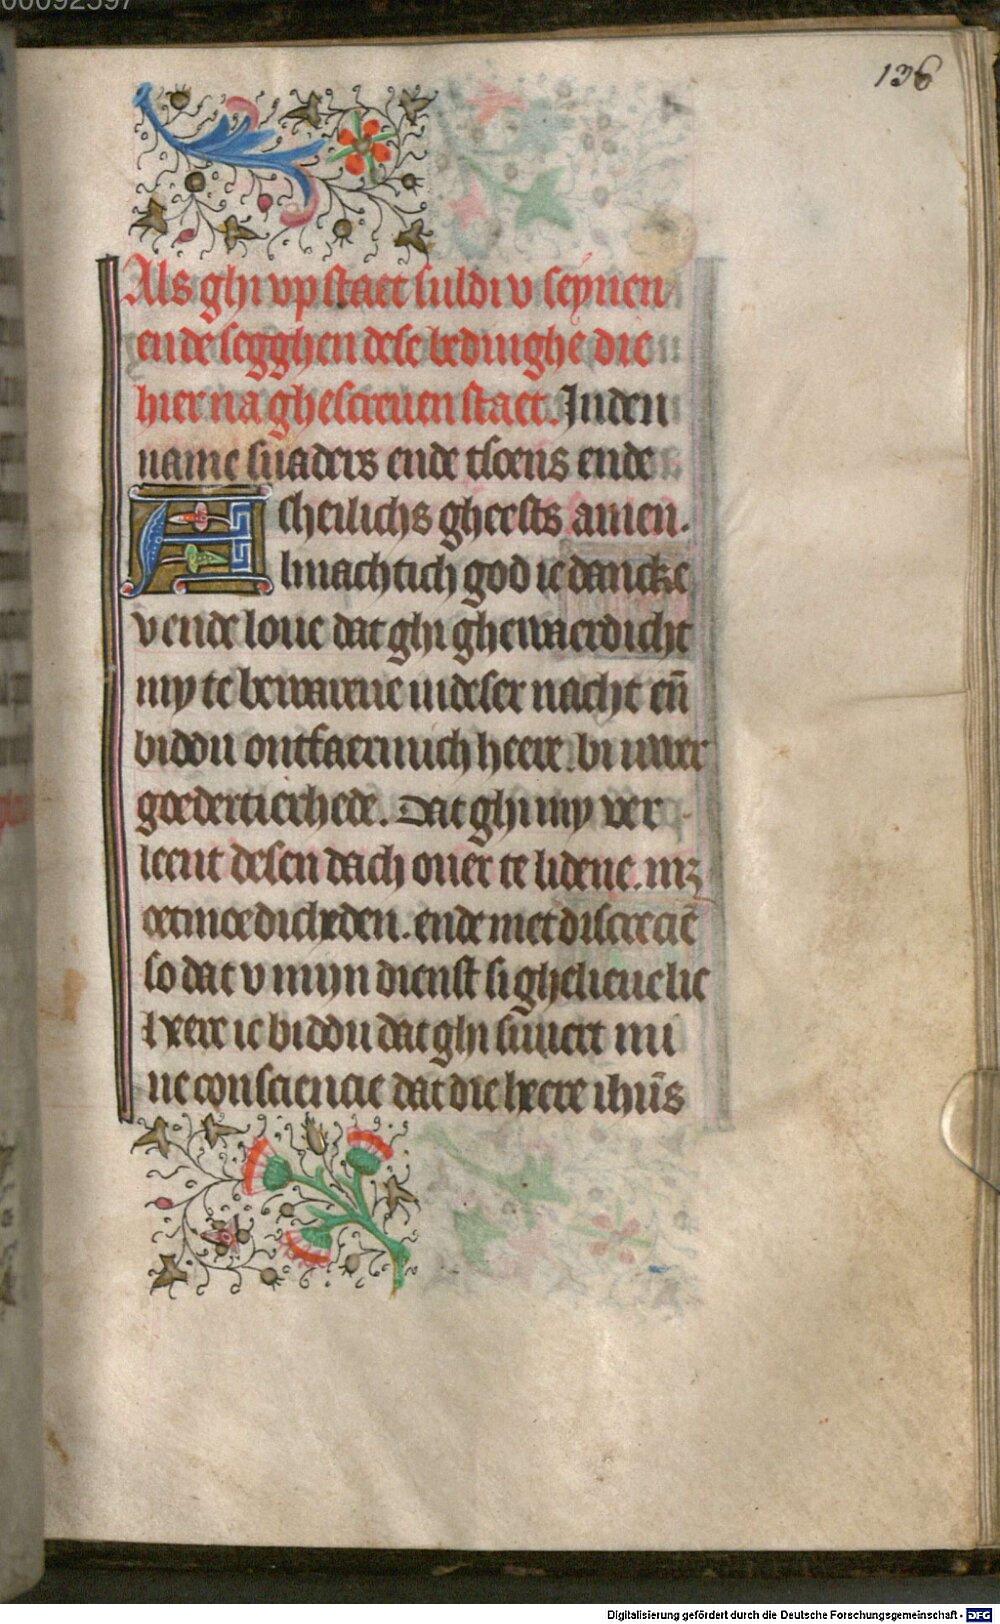 136
Als ghi vp staet suldi v seynen
ende segghen dese bedinghe die
hier na ghescreuen staet. In den
name svaders ende tsoens ende
sheilichs gheests amen.
Almachtich god ic dancke
v ende loue dat ghi ghewaerdicht
my te bewarene in deser nacht en̄
biddu ontfaermich heere. bi uwer
goedertierhede. Dat ghi my ver
leent desen dach ouer te lidene. mꝫ
oetmoedicheden. ende met discrecie̅
so dat v mijn dienst si ghelieuelic
heere ic biddu dat ghi suuert mi
ne consciencie dat die heere ihūs
Digitalisierung gefördert durch die Deutsche Forschungsgemeinschaft - DFG